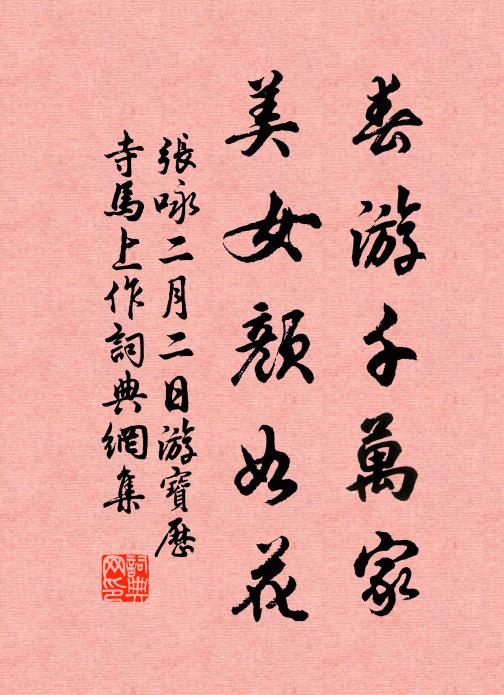 春游千萬家
美女顏如花
張咏二月二日游寶歷
寺馬上作詞典網集
詞典网印